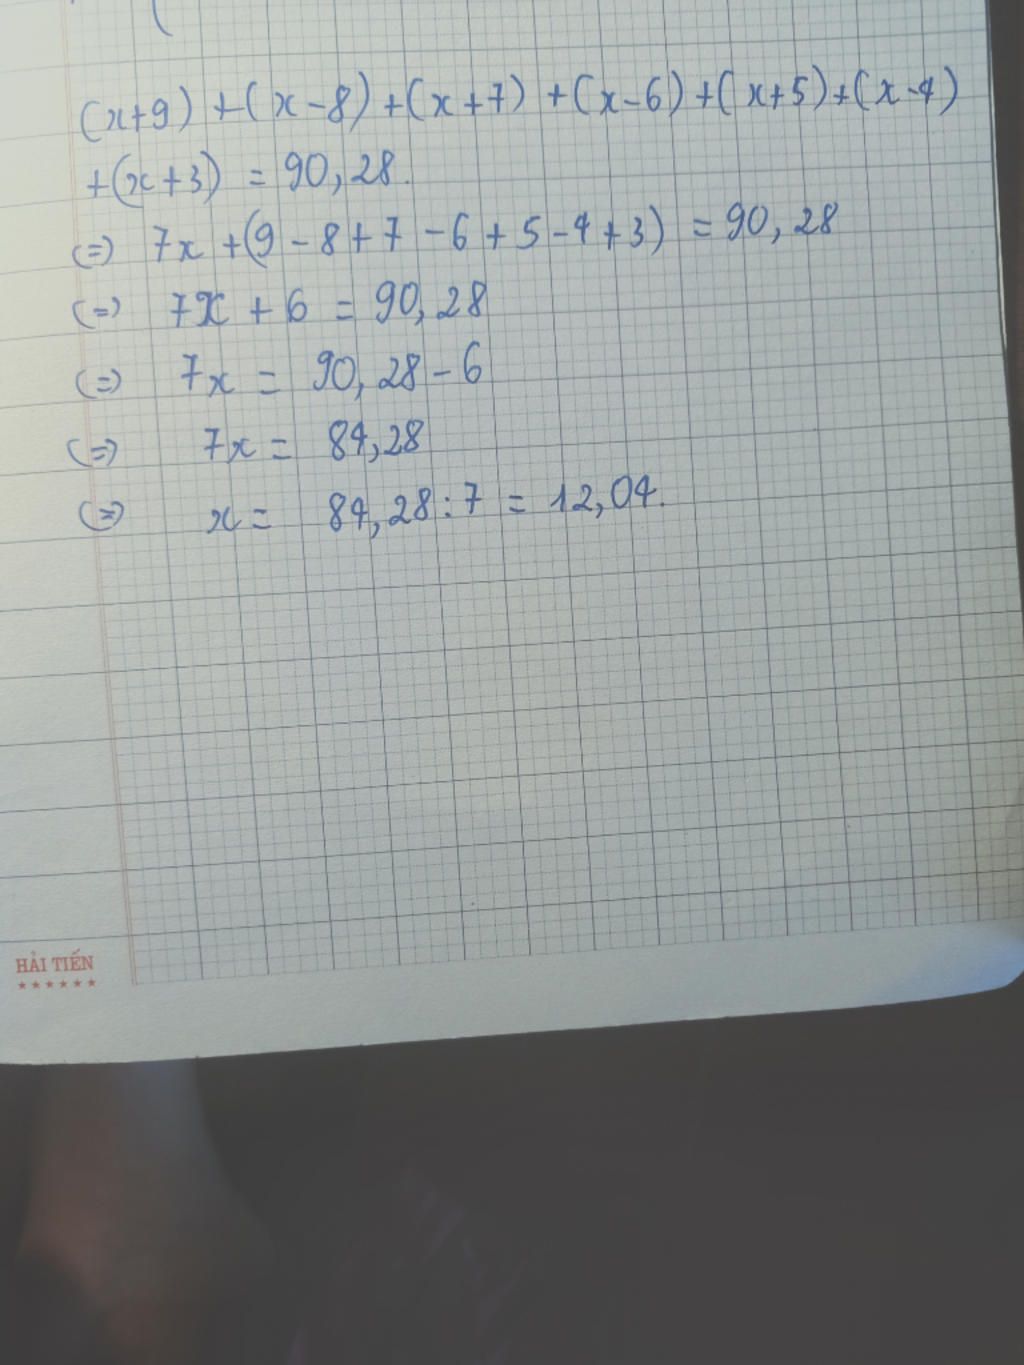 (x+9) +(x-8) +(x+7) +(x-6) +(x+5)+(x-4)
+(x+3) = 90,28.
(=) 7x +(9-8+7-6+5-4+3) = 90,28
(=) 7x + 6 = 90,28
(=) 7x = 90,28-6
(=) 7x = 84,28
(=) x = 84,28:7 = 12,04.
HẢI TIẾN